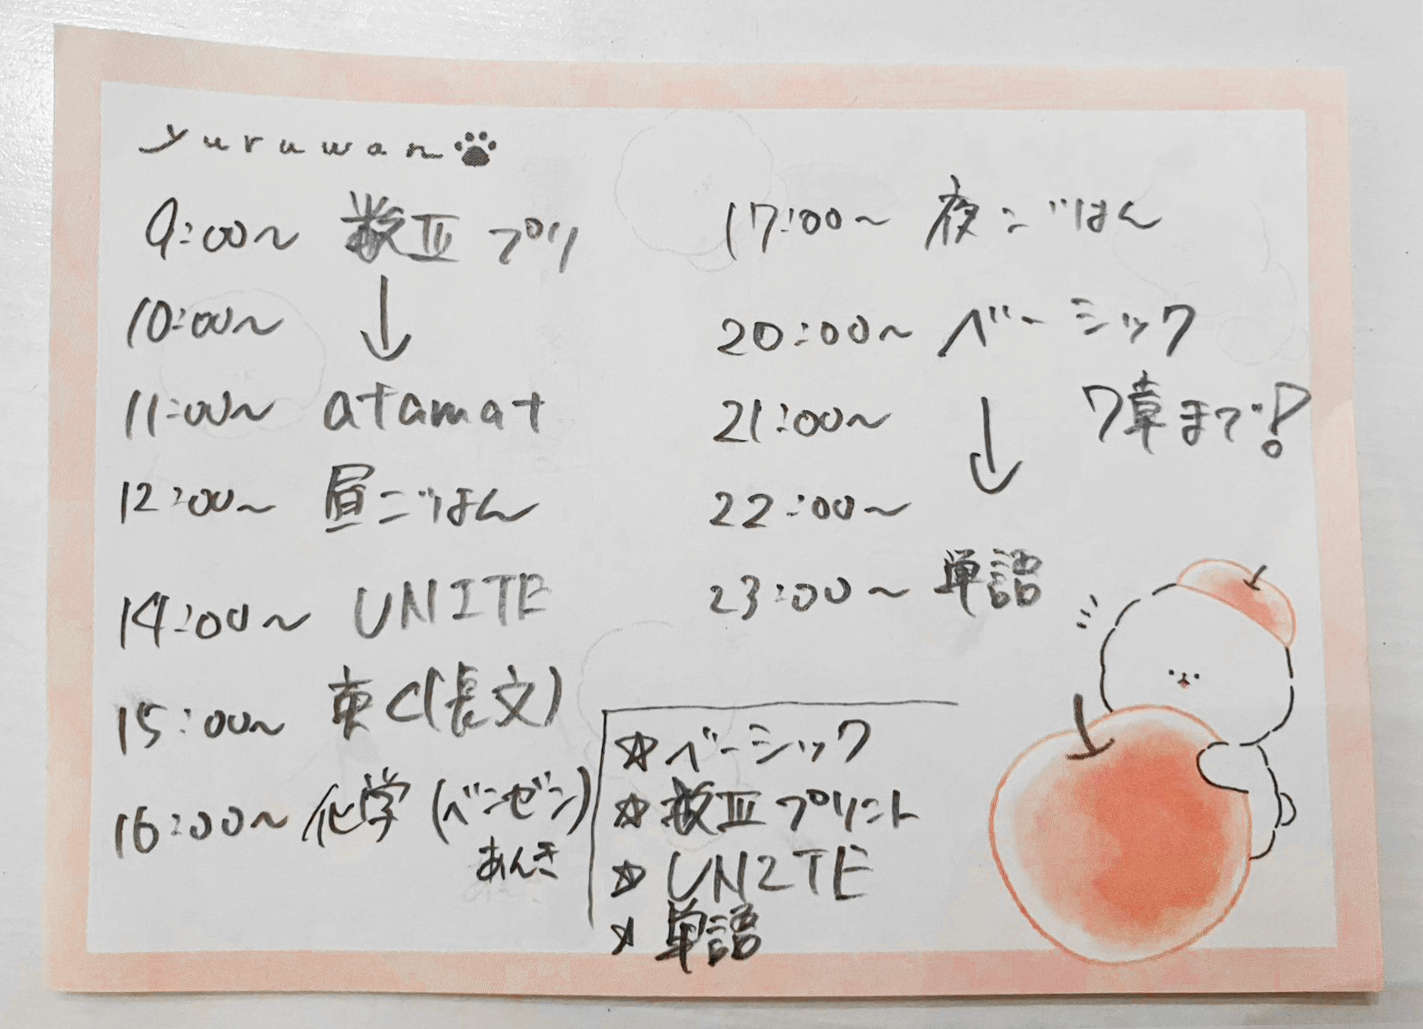 yuruwan
9:00～ 数Ⅲ プリ
10:00～ ↓
11:00～ atamat
12:00～ 昼ごはん
14:00～ UNITE
15:00～ 東C(長文)
16:00～ 化学 (ベンゼン)
あんき
17:00～ 夜ごはん
20:00～ ベーシック
21:00～ ↓ 7章まで!
22:00～
23:00～ 単語
☆ベーシック
☆数Ⅲプリント
☆UNITE
☆単語